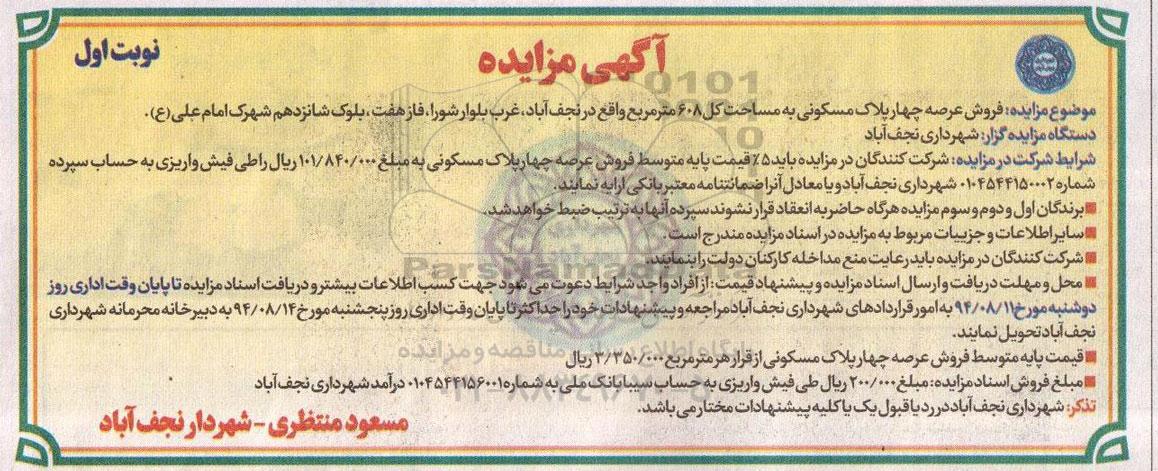 نوبت اول
آگهی مزایده
موضوع مزایده: فروش عرصه چهار پلاک مسکونی به مساحت کل ۶۰۸ مترمربع واقع در نجف آباد، غرب بلوار شورا، فاز هفت، بلوک شانزدهم شهرک امام علی (ع).
دستگاه مزایده گزار: شهرداری نجف آباد
شرایط شرکت در مزایده: شرکت کنندگان در مزایده باید ۵٪ قیمت پایه متوسط فروش عرصه چهار پلاک مسکونی به مبلغ ۱۰۱/۸۴۰/۰۰۰ ریال را طی فیش واریزی به حساب سپرده
شماره ۰۱۰۴۵۴۴۱۵۰۰۰۲ شهرداری نجف آباد و یا معادل آنرا ضمانتنامه معتبر بانکی ارایه نمایند.
■ برندگان اول و دوم و سوم مزایده هرگاه حاضر به انعقاد قرار نشوند سپرده آنها به ترتیب ضبط خواهد شد.
■ سایر اطلاعات و جزییات مربوط به مزایده در اسناد مزایده مندرج است.
■ شرکت کنندگان در مزایده باید رعایت منع مداخله کارکنان دولت را بنمایند.
■ محل و مهلت دریافت و ارسال اسناد مزایده و پیشنهاد قیمت: از افراد واجد شرایط دعوت می شود جهت کسب اطلاعات بیشتر و دریافت اسناد مزایده تا پایان وقت اداری روز
دوشنبه مورخ ۹۴/۰۸/۱۱ به امور قراردادهای شهرداری نجف آباد مراجعه و پیشنهادات خود را حداکثر تا پایان وقت اداری روز پنجشنبه مورخ ۹۴/۰۸/۱۴ به دبیرخانه محرمانه شهرداری
نجف آباد تحویل نمایند.
■ قیمت پایه متوسط فروش عرصه چهار پلاک مسکونی از قرار هر مترمربع ۳/۳۵۰/۰۰۰ ریال
■ مبلغ فروش اسناد مزایده: مبلغ ۲۰۰/۰۰۰ ریال طی فیش واریزی به حساب سیبا بانک ملی به شماره ۰۱۰۴۵۴۴۱۵۶۰۰۱ درآمد شهرداری نجف آباد
تذکر: شهرداری نجف آباد در رد یا قبول یک یا کلیه پیشنهادات مختار می باشد.
مسعود منتظری - شهردار نجف آباد
ParsNamadData